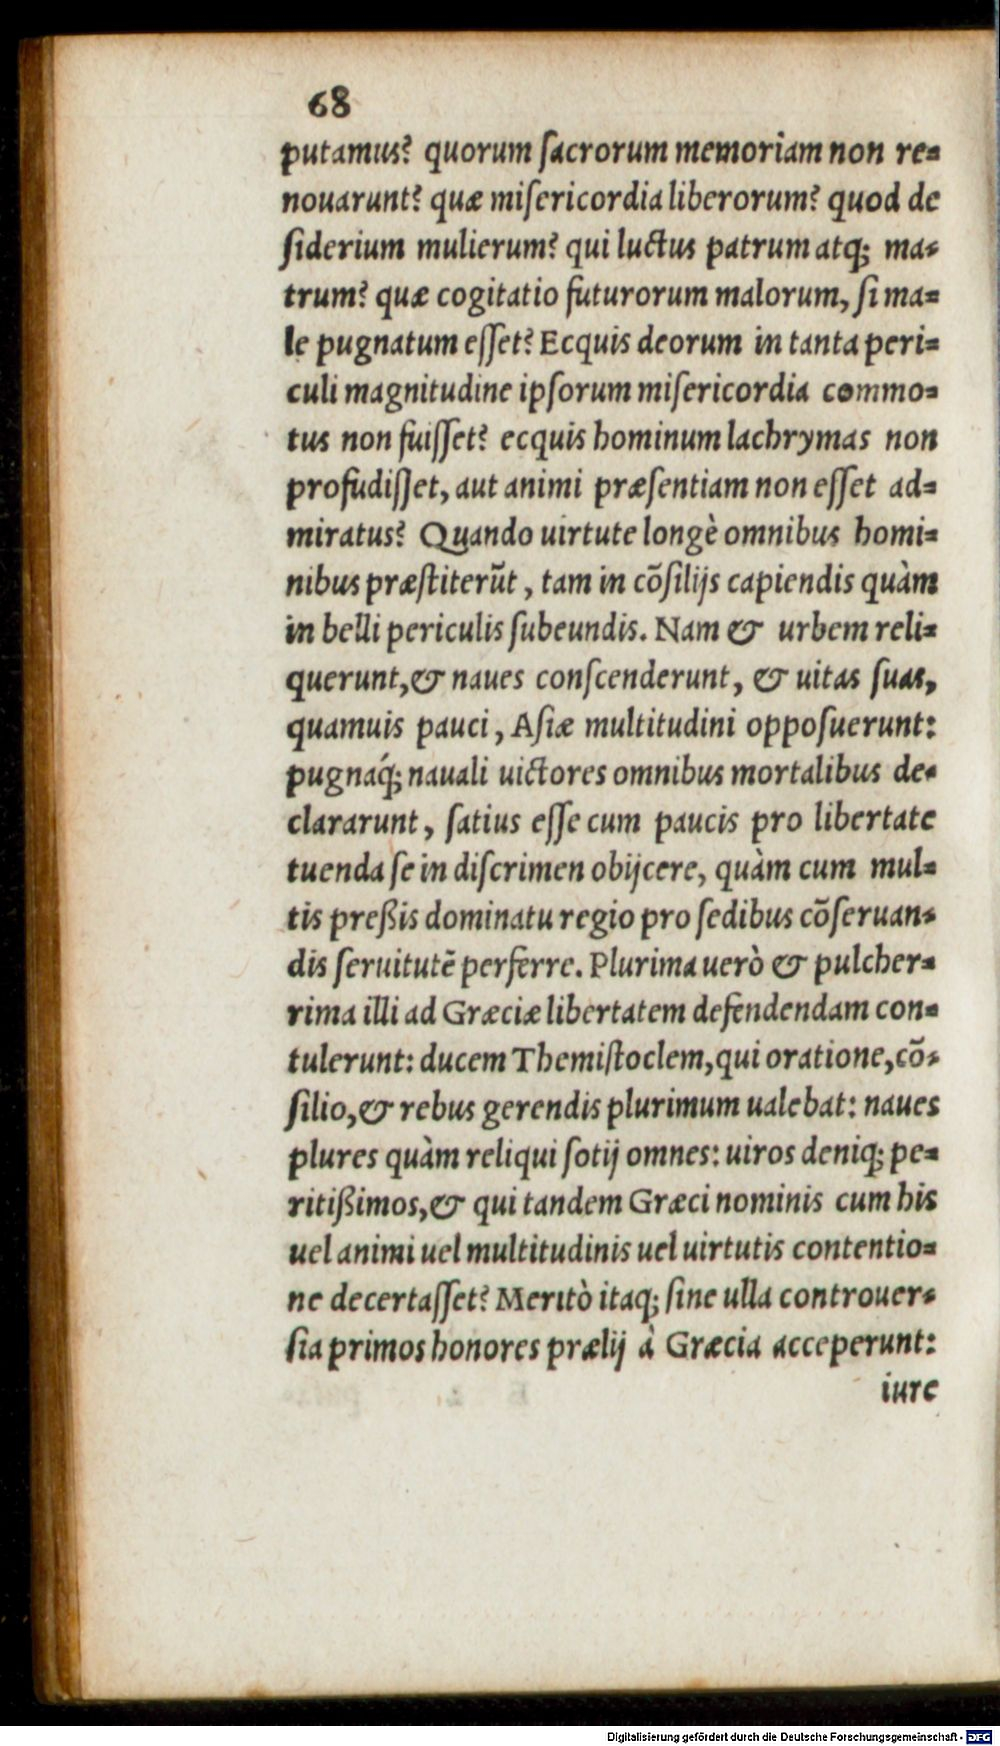 68
putamus? quorum ſacrorum memoriam non re=
nouarunt? quæ miſericordia liberorum? quod de
ſiderium mulierum? qui luctus patrum atq; ma=
trum? quæ cogitatio futurorum malorum, ſi ma=
le pugnatum eſſet? Ecquis deorum in tanta peri=
culi magnitudine ipſorum miſericordia commo=
tus non fuiſſet? ecquis hominum lachrymas non
profudiſſet, aut animi præſentiam non eſſet ad=
miratus? Quando uirtute longè omnibus homi=
nibus præſtiterũt, tam in cõſilijs capiendis quàm
in belli periculis ſubeundis. Nam & urbem reli=
querunt, & naues conſcenderunt, & uitas ſuas,
quamuis pauci, Aſiæ multitudini oppoſuerunt:
pugnaq́; nauali uictores omnibus mortalibus de=
clararunt, ſatius eſſe cum paucis pro libertate
tuenda ſe in diſcrimen obijcere, quàm cum mul=
tis preßis dominatu regio pro ſedibus cõſeruan=
dis ſeruitutẽ perferre. Plurima uerò & pulcher=
rima illi ad Græciæ libertatem defendendam con=
tulerunt: ducem Themiſtoclem, qui oratione, cõ=
ſilio, & rebus gerendis plurimum ualebat: naues
plures quàm reliqui ſotij omnes: uiros deniq; pe=
ritißimos, & qui tandem Græci nominis cum his
uel animi uel multitudinis uel uirtutis contentio=
ne decertaſſet? Meritò itaq; ſine ulla controuer=
ſia primos honores prælij à Græcia acceperunt:
iure
Digitalisierung gefördert durch die Deutsche Forschungsgemeinschaft - DFG